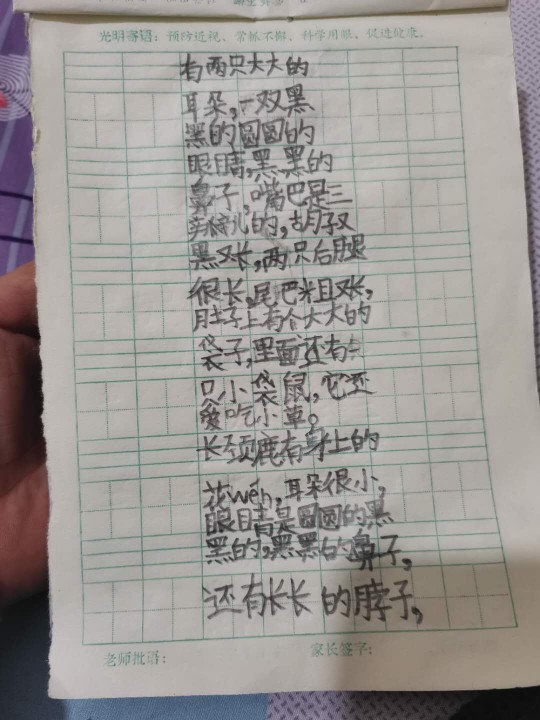 光明寄语：预防近视、常抓不懈、科学用眼、促进健康。
有两只大大的
耳朵,一双黑
黑的圆圆的
眼睛,黑黑的
鼻子,嘴巴是三
的,胡子又
黑又长,两只后腿
很长,尾巴粗又长,
肚子上有个大大的
袋子,里面还有一
只小袋鼠,它还
爱吃小草。
长颈鹿有身上的
花wén,耳朵很小,
眼睛是圆圆的黑
黑的,黑黑的鼻子,
还有长长的脖子,
老师批语：
家长签字：